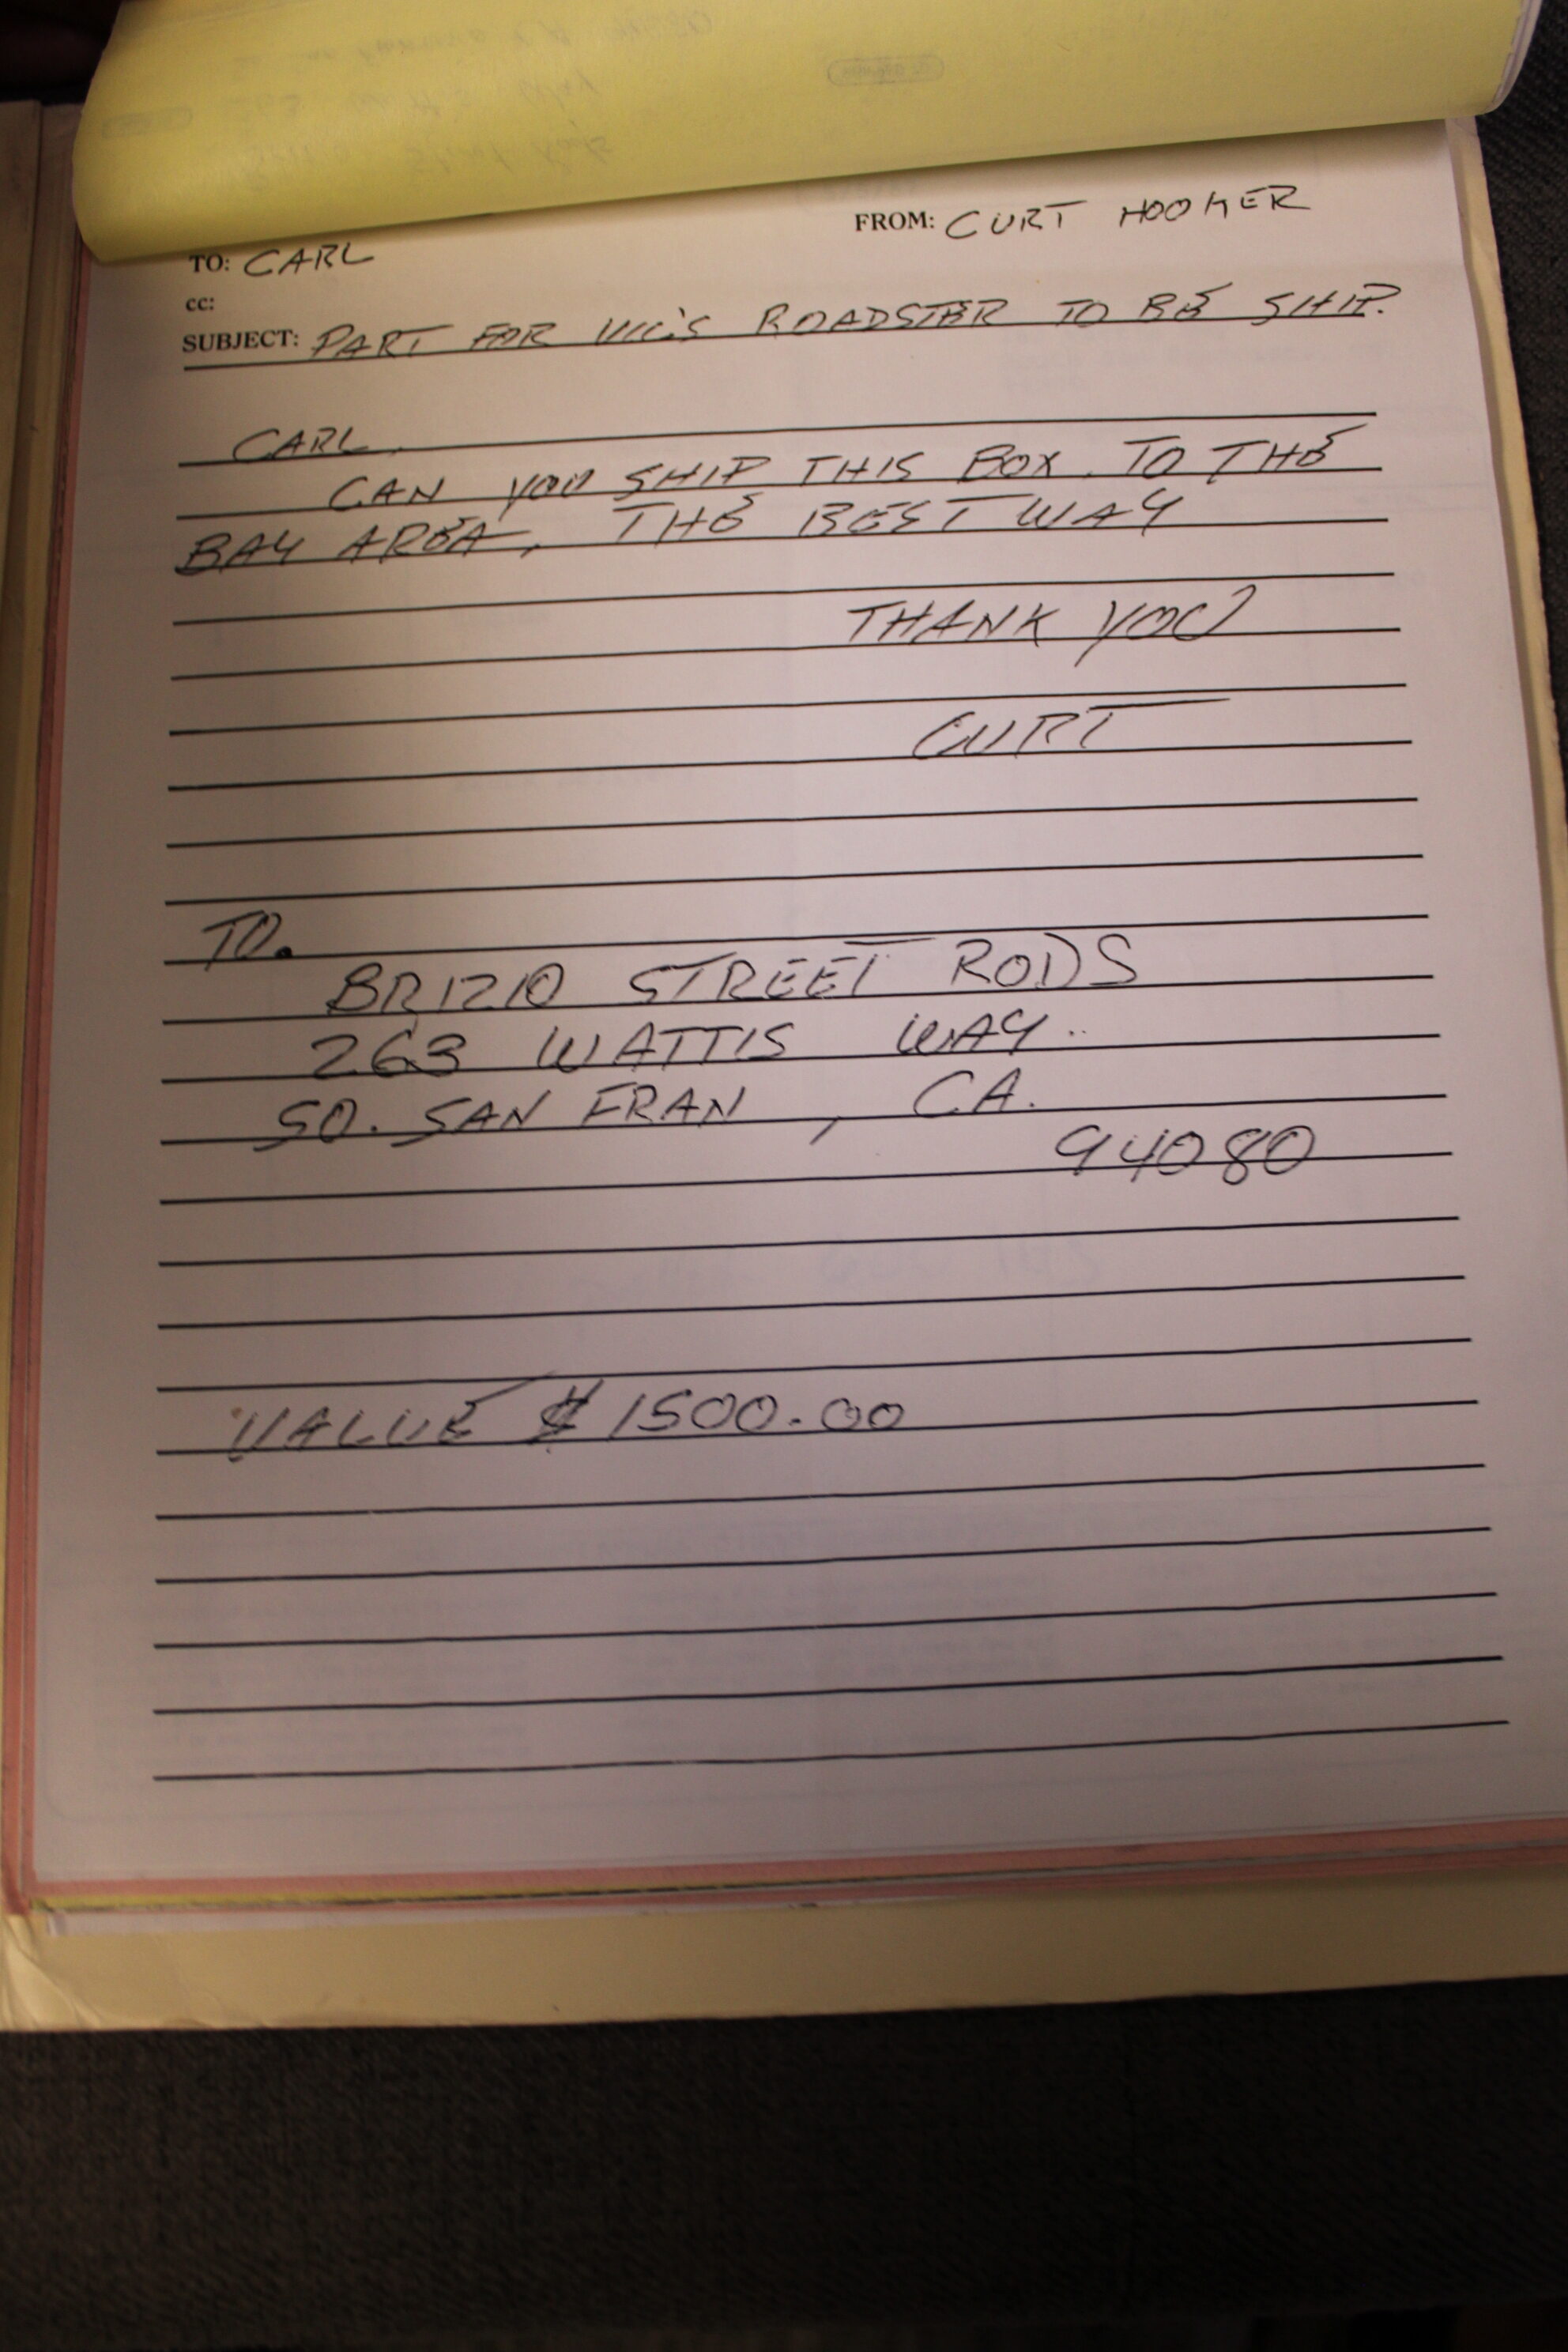 FROM: CURT HOOKER
TO: CARL
cc:
SUBJECT: PART FOR VIC'S ROADSTER TO BE SHIP.
CARL.
CAN YOU SHIP THIS BOX. TO THE
BAY AREA, THE BEST WAY
THANK YOU
CURT
TO.
BRIZIO STREET RODS
263 WATTIS WAY..
SO. SAN FRAN, CA.
94080
VALUE $1500.00